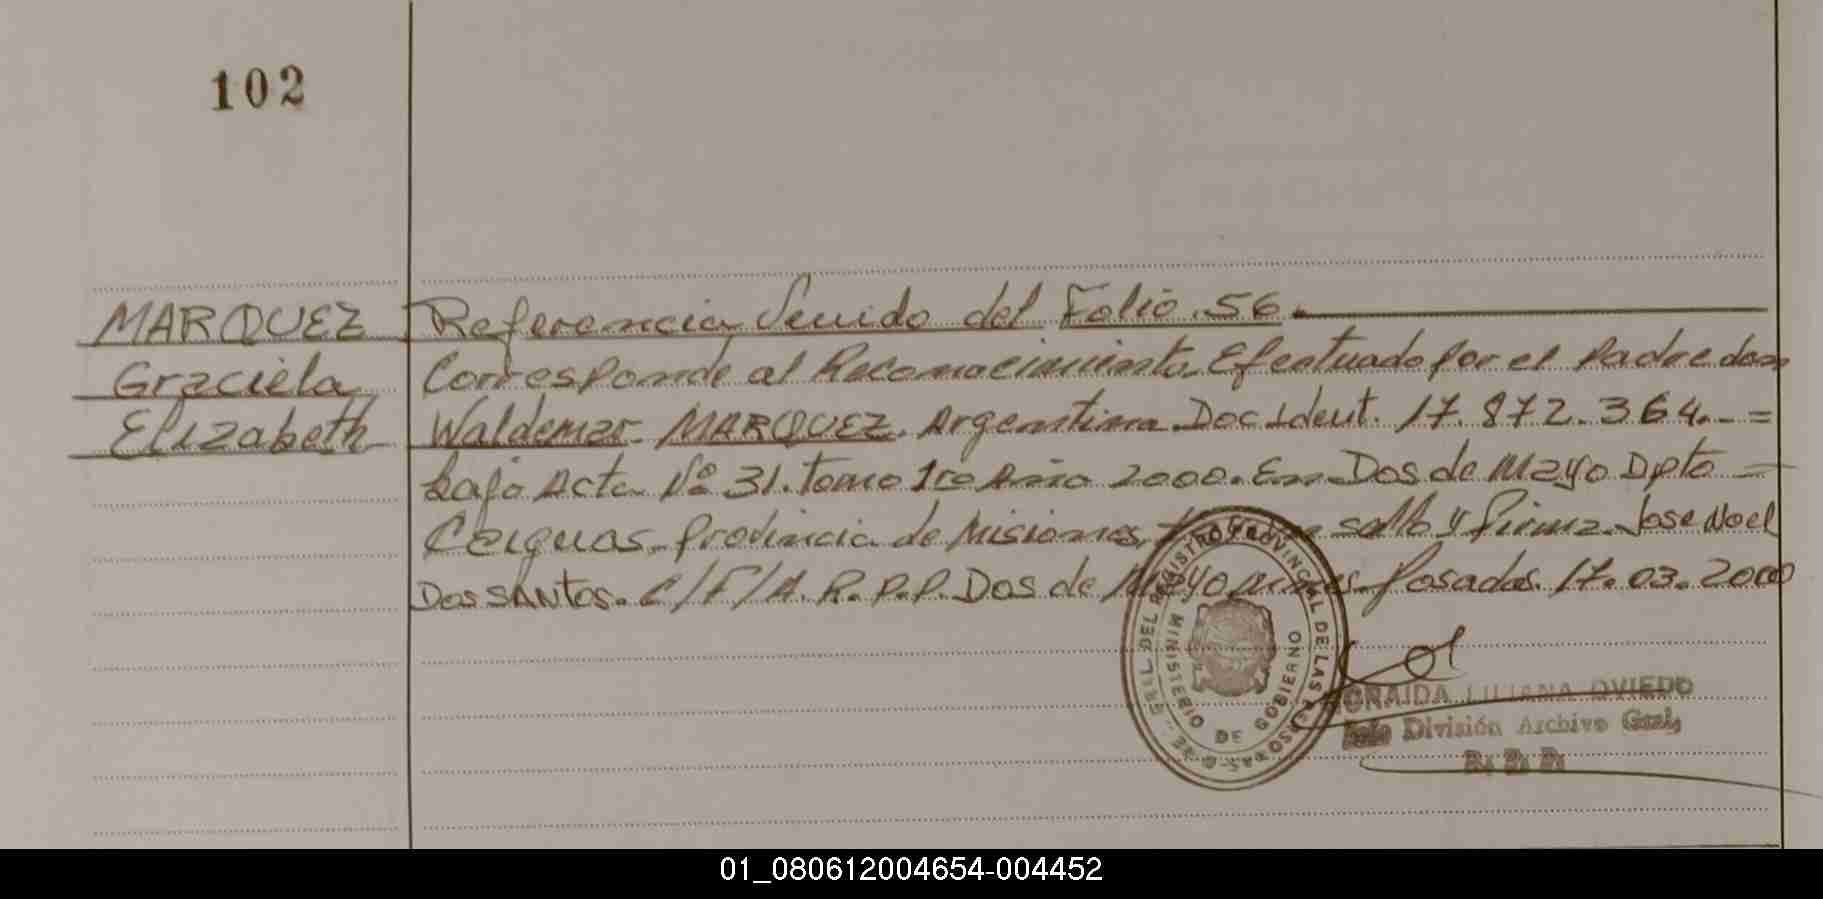 102
MARQUEZ Referencia Venido del Folio. 56.
Graciela Corresponde al Reconocimiento Efectuado por el Padre don
Elizabeth Waldemar MARQUEZ. Argentina. Doc. Ident. 17.872.364. =
bajo Acta Nº 31. tomo 1ro Año 2000. En Dos de Mayo Dpto
Caiguas. Provincia de Misiones, sello y firma. Jose Noel
Dos SANtos. C/F/A. R. P. P. Dos de Mayo Posadas. 17.03.2000
GRAL DEL REGISTRO PROVINCIAL DE LAS PERSONAS
MINISTERIO DE GOBIERNO
LILIANA OVIEDO
Jefe División Archivo Gral.
R. P. P.
01_080612004654-004452